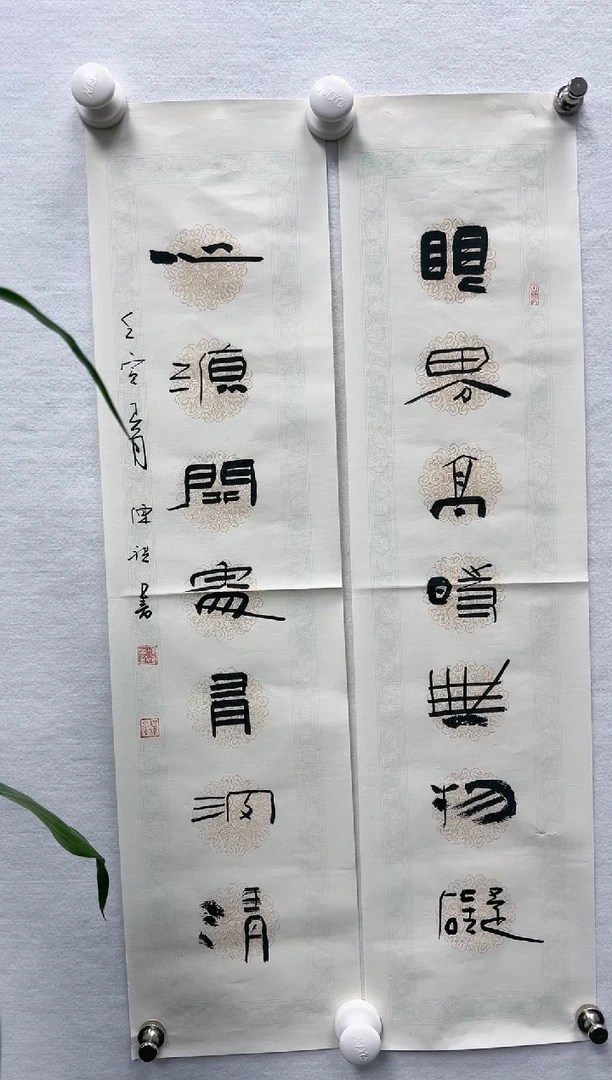 眼界高時無物礙
心源開處有波清
壬寅 陳祺書